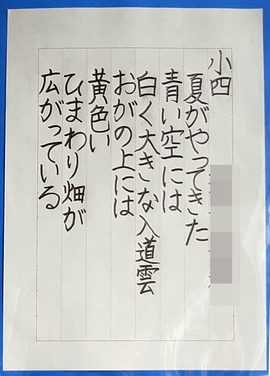 小四
夏がやってきた
青い空には
白く大きな入道雲
おがの上には
黄色い
ひまわり畑が
広がっている